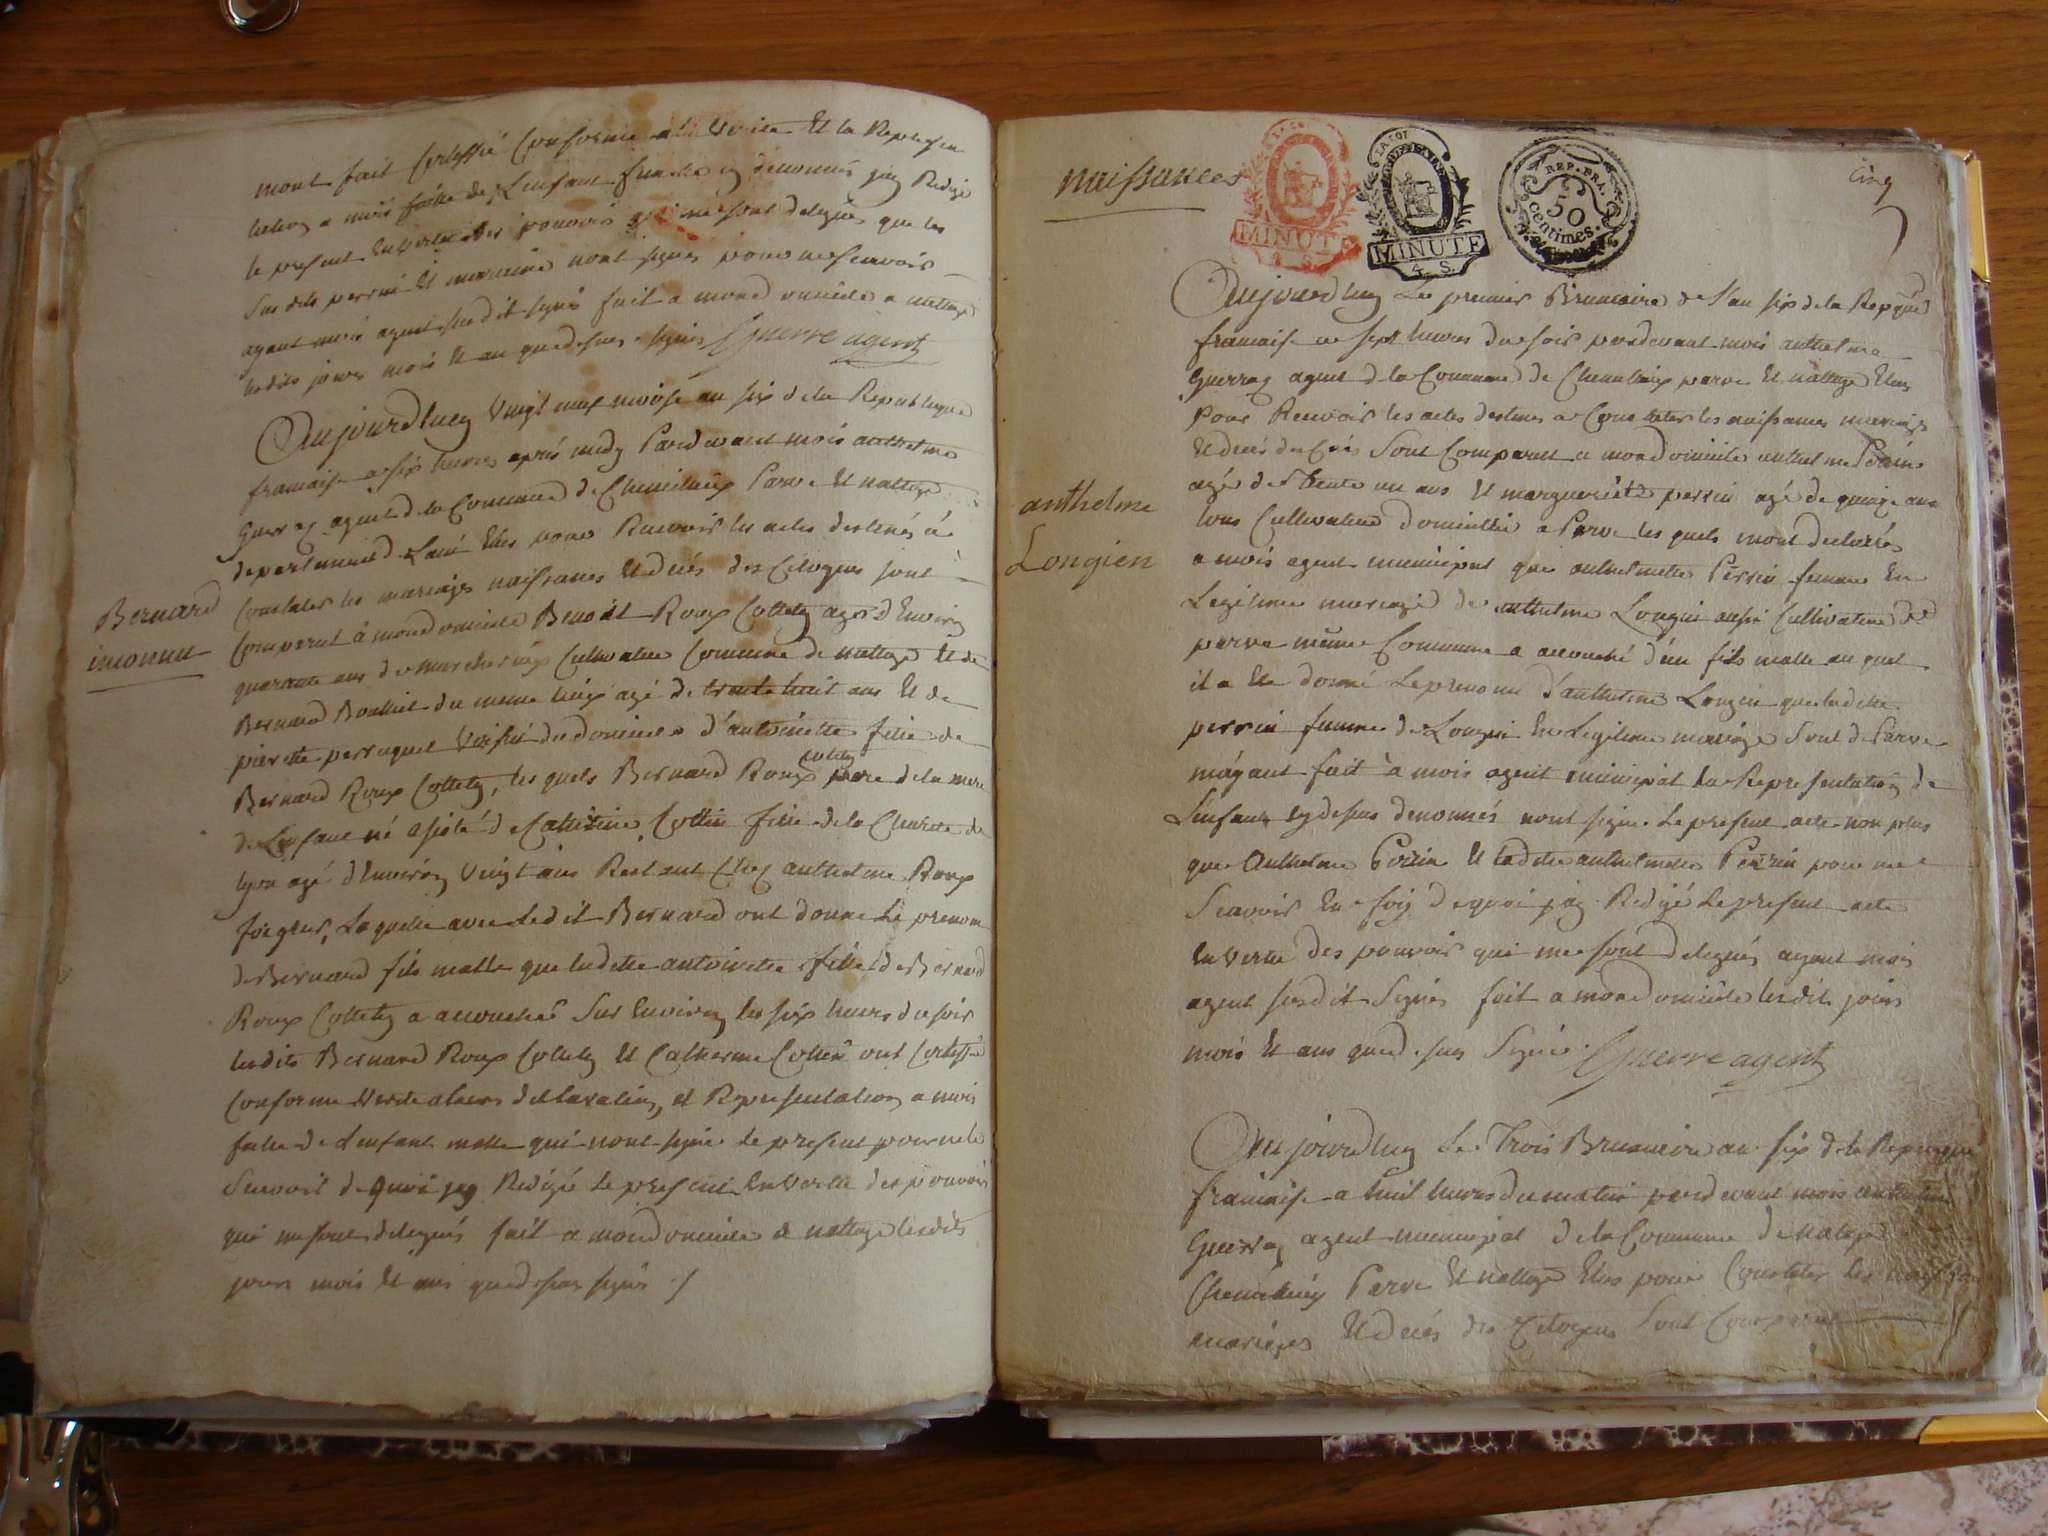 mont fait Certiffié Conforme a la Verite Et la Represen
tation a mois faitte de Lenfant femelle cy denommé jay Redigé
le present En Vertu des pouvoirs qui me sont delegués que les
Susdits perrin Et marraine nont signés pour ne Scavoir
ayant mois agent susdit signé fait a mon domicile a nattage
lesdits jours mois Et an que dessus signés Guerre agent
Aujourdhuy Vingt neuf nivôse an six de la Republique
francaise a six heures aprés midy Pardevant mois anthelme
Guerraz agent de la Commune de Chemilieux Parve Et nattage
departement de Lain Elus pour Recevoir les actes destinés á
Constater les mariages naissances Et decés des Citoyens sont
Comparut á mon domicile Benoit Roux Collety agés dEnviron
quarante ans de Cultivateur Commune de nattage Et de
Bernard du meme lieux agé de trente huit ans Et de
pierrette perruquet du domicile d'antoinette fille de
Bernard
inconnu
Bernard Roux Collety, les quels Bernard Roux Collety pere de la mere
de Lenfant né assisté de Catherine Collin fille de la Charité de
lyon agé dEnviron Vingt ans Restant Chez anthelme Roux
forgeur, Laquelle avec ledit Bernard ont donné Le prenom
de Bernard fils malle que ladette antoinette fille de Bernard
Roux Collety a accouchée Sur Environ les six heures du soir
lesdits Bernard Roux Collety Et Catherine Collin ont Certiffié
Conforme declaration, et Representation a mois
faitte de Lenfant malle qui nont signé le present pour ne le
Scavoir de quoi jay Redigé Le present En Vertu des pouvoirs
qui me sont delegués fait a mon domicile a nattage lesdits
jours mois Et an que dessus signé
naissances
MINUTE
4. S.
LA LOI
MINUTE
4. S.
REP. FRA.
50
centimes.
Cinq
Aujourdhuy Le premier Brumaire de l'an six de la Repque
francaise a sept heures du soir pardevant mois anthelme
Guerraz agent de la Commune de Chemilieux parve Et nattage Elus
Pour Recevoir les actes destines a Constater les naissances mariages
Et decés des Sont Comparut a mon domicile anthelme Perrin
agé de Trente un ans Et marguerite perrin agé de quinze ans
tous Cultivateur domicillié a Parve les quels mont declarés
a mois agent municipal que anthelmette Perrin femme En
Legitime mariage de anthelme Longin aussi Cultivateur de
parve même Commune a accouché d'un fils malle au quel
il a Ete donné Le prenom d'anthelme Longin que ladette
perrin femme de Longin En Legitime mariage Sont de Parve
m'ayant fait à mois agent municipal la Representation de
Lenfant cy dessus denommés nont signé Le present acte non plus
que Anthelme Perrin Et ladette anthelmette Perrin pour ne
Scavoir En foy de quoi jay Redigé Le present acte
En Vertu des pouvoir qui me sont delegués ayant mois
agent susdit Signés fait a mon domicile lesdits jours
mois Et ans que dessus Signé. Guerre agent
anthelme
Longien
Aujourdhuy Le Trois Brumaire an six de la Republique
francaise a huit heures du matin pardevant mois anthelme
Guerraz agent municipal de la Commune de Natage
Chemilieux Parve Et nattage Elus pour Constater les naissances
mariages Et decés des Citoyens Sont Comparut